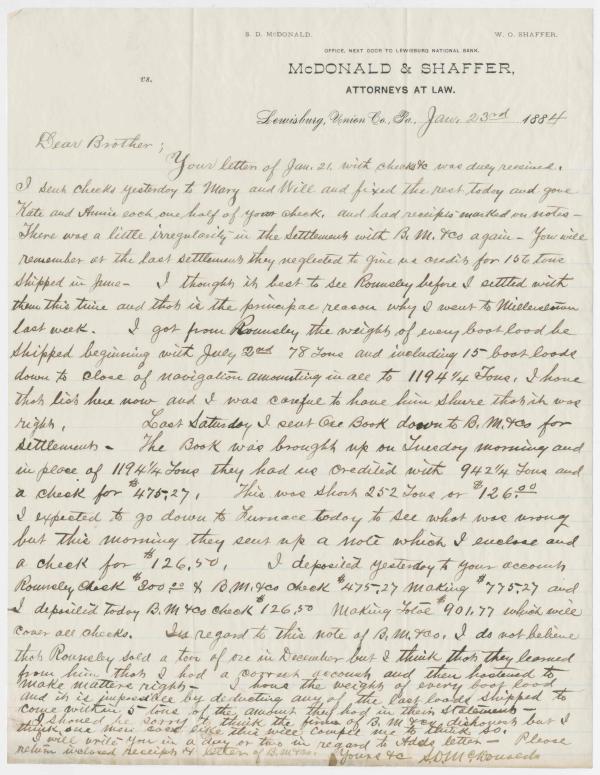 S. D. McDONALD.
W. O. SHAFFER.
OFFICE, NEXT DOOR TO LEWISBURG NATIONAL BANK.
McDONALD & SHAFFER,
ATTORNEYS AT LAW.
vs.
Lewisburg, Union Co., Pa., Jan. 23rd 1884
Dear Brother;
Your letter of Jan. 21. with checks &c was duly received.
I sent checks yesterday to Mary and Will and fixed the rest today and gave
Kate and Annie each one half of your check. and had receipts marked on notes -
There was a little irregularity in the settlement with B. M. & Co again - You will
remember at the last settlement they neglected to give us credit for 156 tons
shipped in June - I thought it best to see Rounsley before I settled with
them this time and that is the principal reason why I went to Millerstown
last week. I got from Rounsley the weights of every boat load he
shipped beginning with July 2nd 78 Tons and including 15 boat loads
down to close of navigation amounting in all to 1194 1/4 Tons. I have
that list here now and I was careful to have him shure that it was
right. Last Saturday I sent Ore Book down to B. M. & Co for
settlement - The Book was brought up on Tuesday morning and
in place of 1194 1/4 Tons they had us credited with 942 1/4 Tons and
a check for $475.27. This was short 252 Tons or $126.00
I expected to go down to Furnace today to see what was wrong
but this morning they sent up a note which I enclose and
a check for $126.50. I deposited yesterday to your account
Rounsley Check $300.00 & B. M. & Co check $475.27 making $775.27 and
I deposited today B. M. & Co check $126.50 Making Total $901.77 which will
cover all checks. In regard to this note of B. M. & Co. I do not believe
that Rounsley sold a ton of ore in December but I think that they learned
from him that I had a correct account and then hastened to
make matters right - I have the weight of every boat load
and it is impossible by deducting any of the last loads shipped to
come within 5 tons of the amount they had in their statement -
I should be sorry to think the firm of B. M. & Co dishonest but I
think one more such like this will compel me to think so.
I will write you in a day or two in regard to Adds letter - Please
return inclosed receipts & letter of B. M. & Co. Yours &c S. D. McDonald